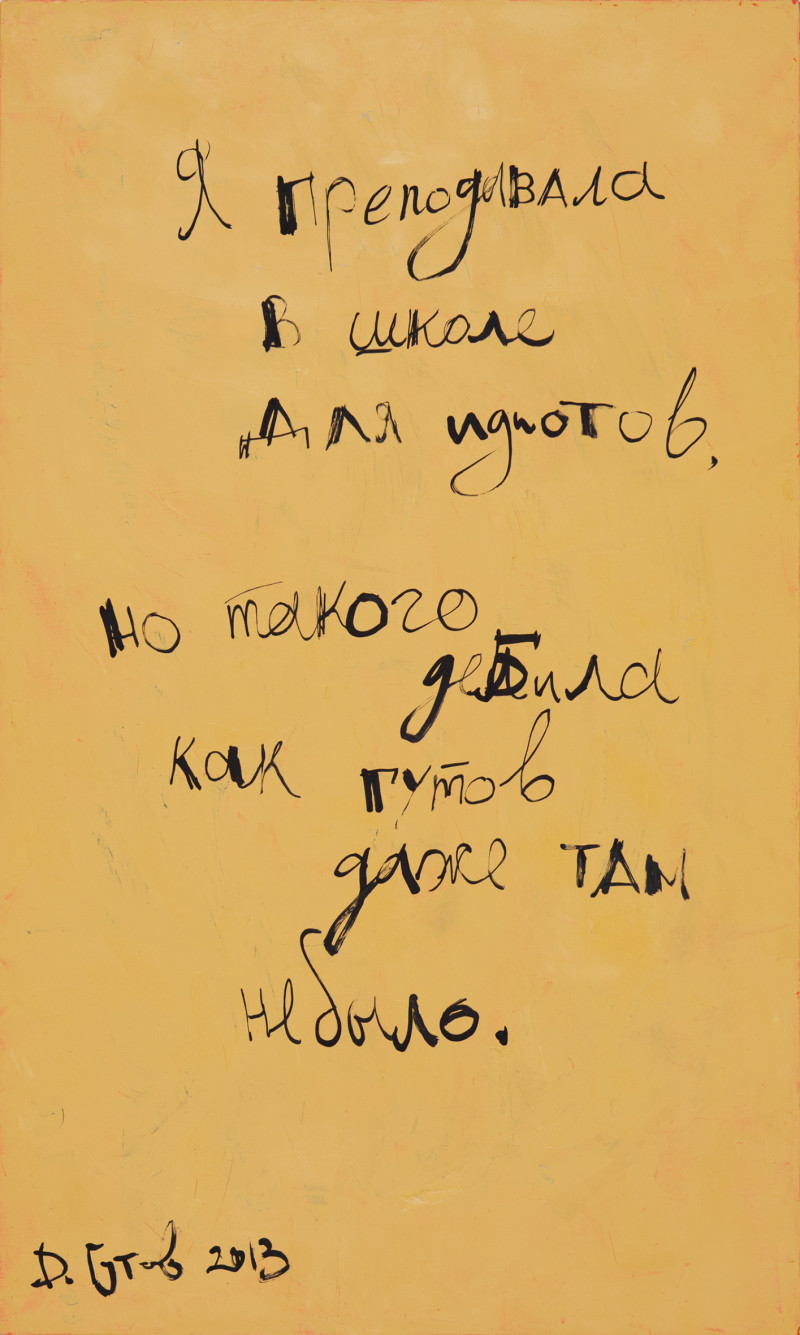 Я преподавала
в школе
для идиотов,
но такого
дебила
как гутов
даже там
не было.
Д. Гутов 2013